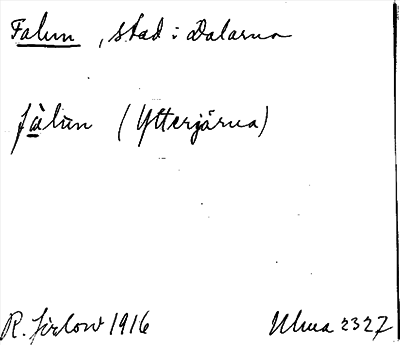 Falun, stad i Dalarna
fàlun (Ytterjärna)
R. Jirlow 1916 Ulma 2327